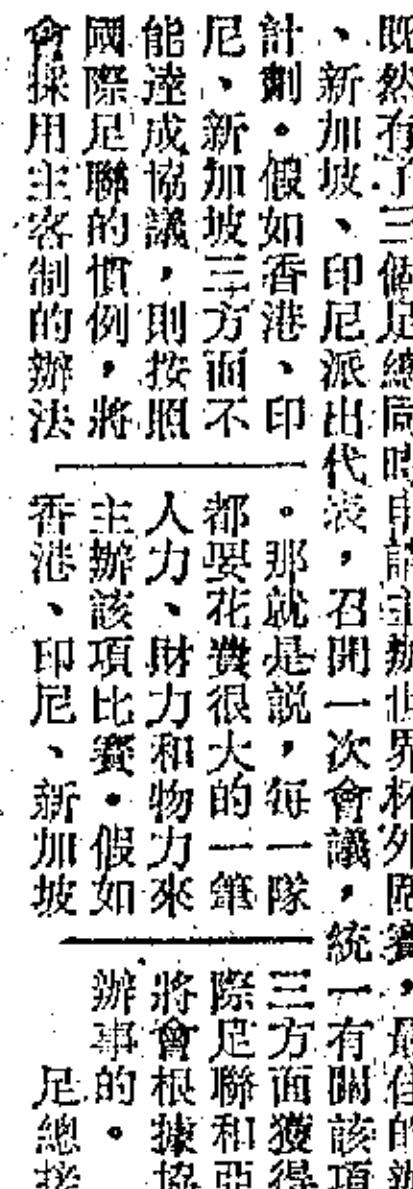 既然有了三個足總同時申請主辦世界杯外圍賽，最佳的辦
、新加坡、印尼派出代表，召開一次會議，統一有關該項
計劃。假如香港、印
尼、新加坡三方面不
能達成協議，則按照
國際足聯的慣例，將
會採用主客制的辦法
。那就是說，每一隊
都要花費很大的一筆
人力、財力和物力來
主辦該項比賽。假如
香港、印尼、新加坡
三方面獲得
際足聯和亞
將會根據協
辦事的。
足總接